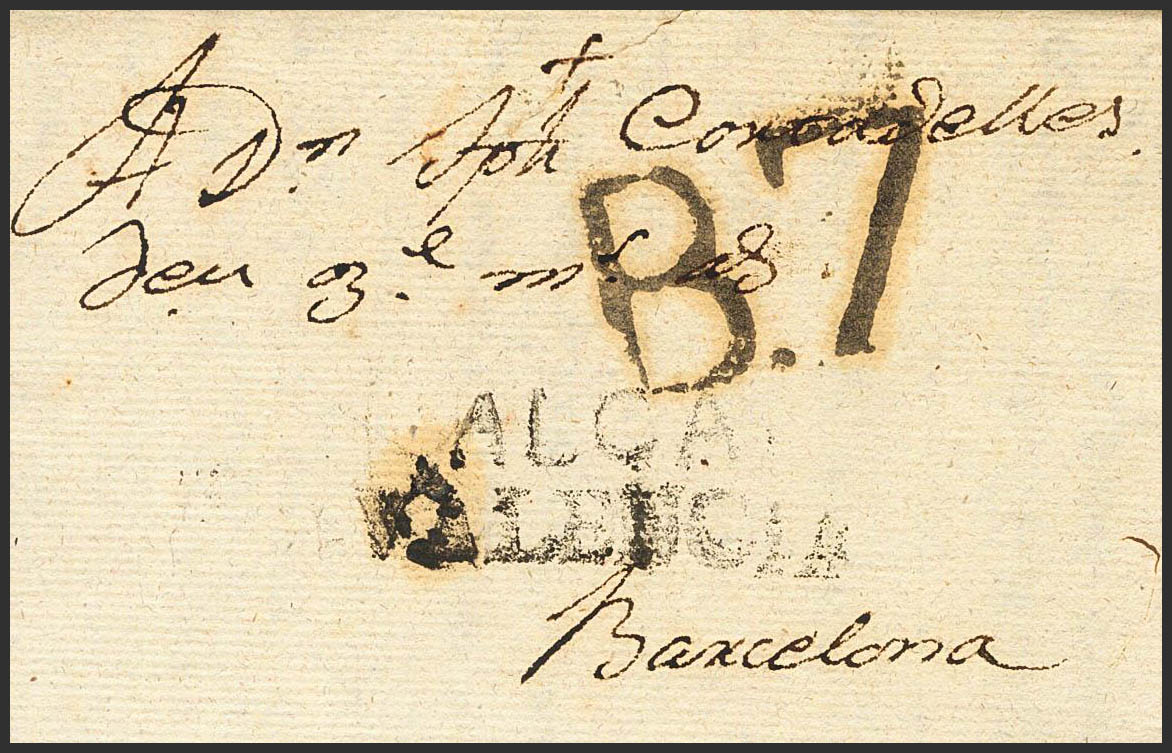 A Dn. Jph Corradelles.
Deu g.e m.s as
B.7
ALCA
VALENCIA
Barcelona